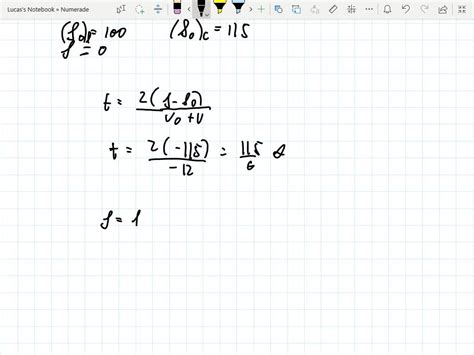 Lucas's Notebook » Numerade
(s₀)ⱼ = 100 (s₀)c = 115
s = 0
t = 2(s-s₀) / v₀+v
t = 2(-115) / -12 = 115/6 s
s = 1